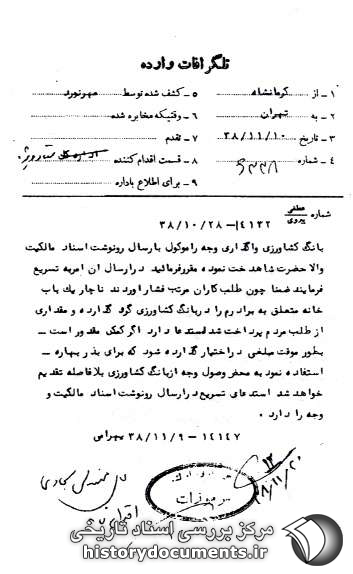 تلگرافات وارده
۱ـ از کرمانشاه
۲ـ به تهران
۳ـ تاریخ ۳۸/۱۱/۱۰
۴ـ شماره
۵ـ کشف شده توسط مهرنورد
۶ـ وقتیکه مخابره شده
۷ـ تقدم
۸ـ قسمت اقدام کننده
۹ـ برای اطلاع باداره
شماره عطفی پیروی ۱۴۱۳۲ـ ۳۸/۱۰/۲۸
بانک کشاورزی واگذاری وجه راموکول بارسال رونوشت اسناد مالکیت
والا حضرت شاهدخت نموده مقررفرمائید درارسال آن امربه تسریع
فرمایند ضمنا چون طلب کاران مرتب فشار آوردند ناچار یک باب
خانه متعلق به برادرم را دربانک کشاورزی گرو گذارده و مقداری
از طلب مردم پرداخت شد استدعا دارد اگر کمک مقدور است ـ
بطور موقت مبلغی دراختیار گذارده شود که برای بذر بهاره ـ
استفاده نمود به محض وصول وجه ازبانک کشاورزی بلافاصله تقدیم
خواهد شد استدعای تسریع درارسال رونوشت اسناد مالکیت و
وجه را دارد ۰
۱۴۱۴۷ ـ ۳۸/۱۱/۹ بهرامی
اقدام
مرکز بررسی اسناد تاریخی
historydocuments.ir